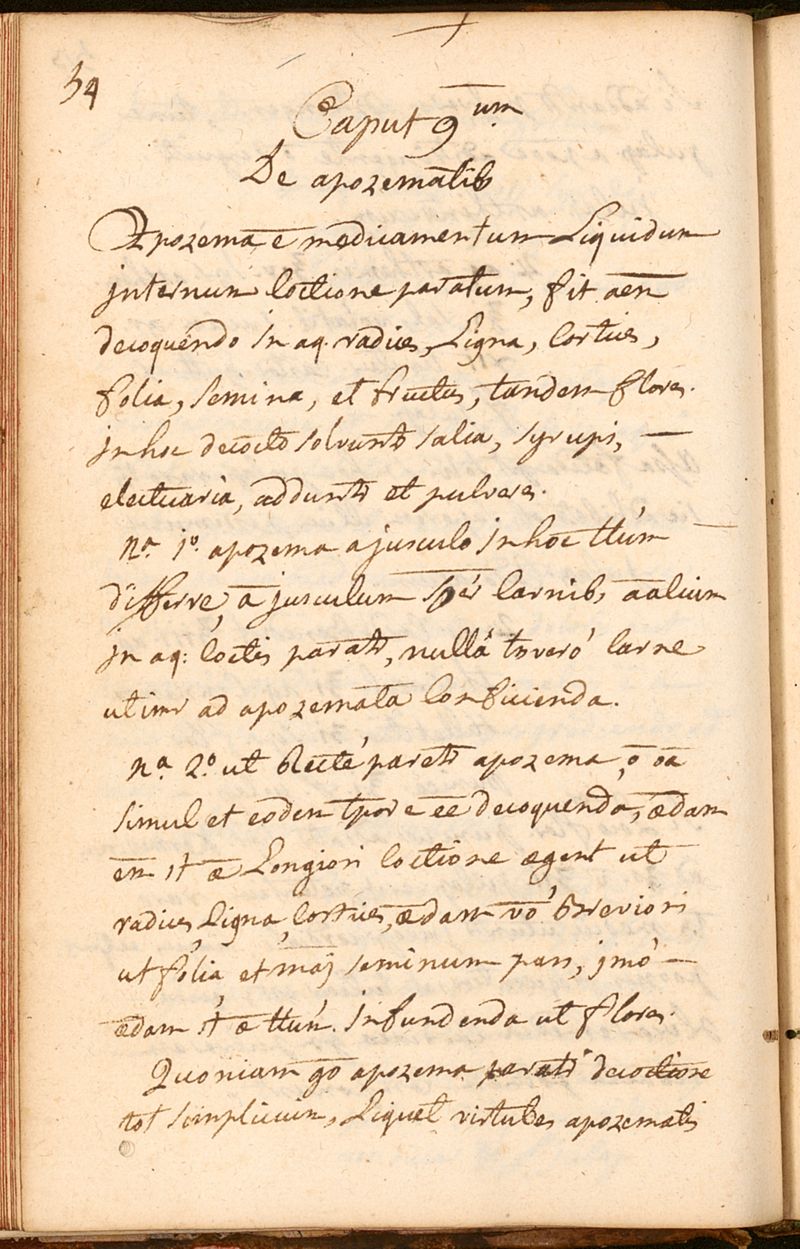 54
Caput 9um
De apozematib
Apozema ē medicamentum Liquidum
internum Coctione paratum, fit aēn
decoquendo in aq. radices, Ligna, Cortices,
folia, semina, et fructus, tandem flores.
in hoc decocto solvuntr salia, syrupi,
electuaria, adduntr et pulveres.
na. 1o. apozema a jusculo in hoc ttúm
differre, jusculum Carnib,
in aq: Coctis paratr, nullâ verò Carne
utimr ad apozemata Conficienda.
na. 2o. ut Rectè paretr apozema, ō oā
simul et eodem tpore eē decoquenda, ædam
ēn st æ Longiori Coctione egent ut
radices, Ligna, Cortices, ædam vō breviori
ut folia et māj seminum pars, jmò
ædam st æ ttúm infundenda ut flores.
Quoniam gō apozema paratr decoctione
tot simplicium, Liquet virtutes apozematis